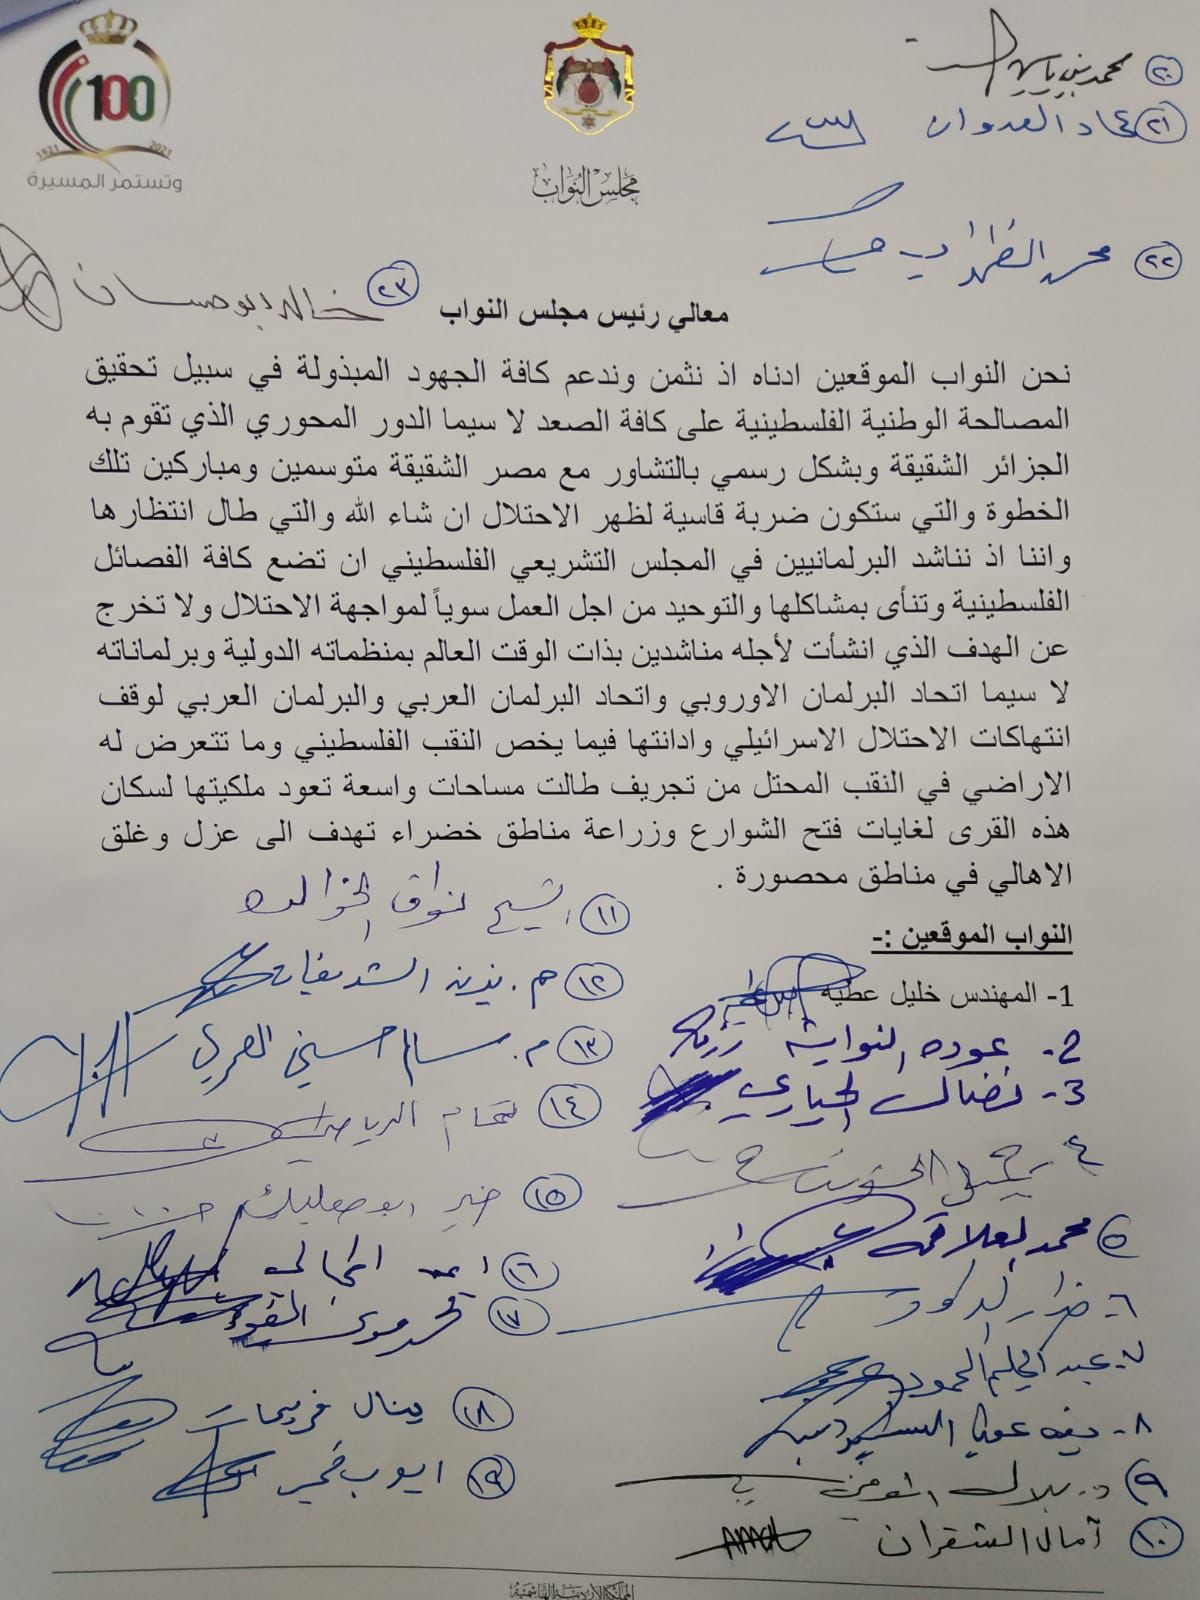 100
1921 2021
وتستمر المسيرة
مجلس النواب
٢٠ محمد بني ياسين
٢١ عماد العدوان
٢٢ محمد الظهراوي
٢٣ خالد ابو حسان
معالي رئيس مجلس النواب
نحن النواب الموقعين ادناه اذ نثمن وندعم كافة الجهود المبذولة في سبيل تحقيق
المصالحة الوطنية الفلسطينية على كافة الصعد لا سيما الدور المحوري الذي تقوم به
الجزائر الشقيقة وبشكل رسمي بالتشاور مع مصر الشقيقة متوسمين ومباركين تلك
الخطوة والتي ستكون ضربة قاسية لظهر الاحتلال ان شاء الله والتي طال انتظارها
واننا اذ نناشد البرلمانيين في المجلس التشريعي الفلسطيني ان تضع كافة الفصائل
الفلسطينية وتنأى بمشاكلها والتوحيد من اجل العمل سوياً لمواجهة الاحتلال ولا تخرج
عن الهدف الذي انشأت لأجله مناشدين بذات الوقت العالم بمنظماته الدولية وبرلماناته
لا سيما اتحاد البرلمان الاوروبي واتحاد البرلمان العربي والبرلمان العربي لوقف
انتهاكات الاحتلال الاسرائيلي وادانتها فيما يخص النقب الفلسطيني وما تتعرض له
الاراضي في النقب المحتل من تجريف طالت مساحات واسعة تعود ملكيتها لسكان
هذه القرى لغايات فتح الشوارع وزراعة مناطق خضراء تهدف الى عزل وغلق
الاهالي في مناطق محصورة .
النواب الموقعين :-
1- المهندس خليل عطيه
2- عوده النوايشة
3- نضال الحياري
٤
٥ محمد العلاقمه
٦- ضرار الداود
٧- عبد الحليم الحمود
٨-
٩ د. بلال المومني
١٠ آمال الشقران
١١ الشيخ نواف الخوالده
١٢ م. يزيد الشديفات
١٣ م. سالم حسني العمري
١٤ تمام الرياطي
١٥ خير ابو صعيليك
١٦ المجالي
١٧
١٨ ينال فريحات
١٩ ايوب خميس
المملكة الأردنية الهاشمية